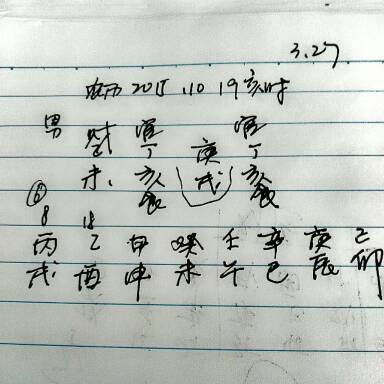 3.27
农历 2015.10 19亥时
男 财 官 官
丁 庚 丁
未 亥 戌 亥
食 食
⑥
8 18
丙 乙 甲 癸 壬 辛 庚 己
戌 酉 申 未 午 巳 辰 卯